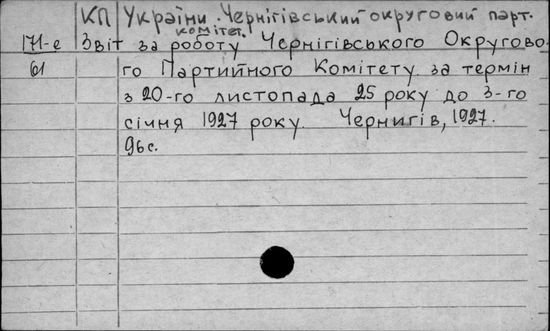 КП України. Чернігівський округовий парт.
комітет.
171-е Звіт за роботу Чернігівського Округово-
61 го Партийного Комітету за термін
з 20-го листопада 25 року до 3-го
січня 1927 року. Чернигів, 1927.
96 с.